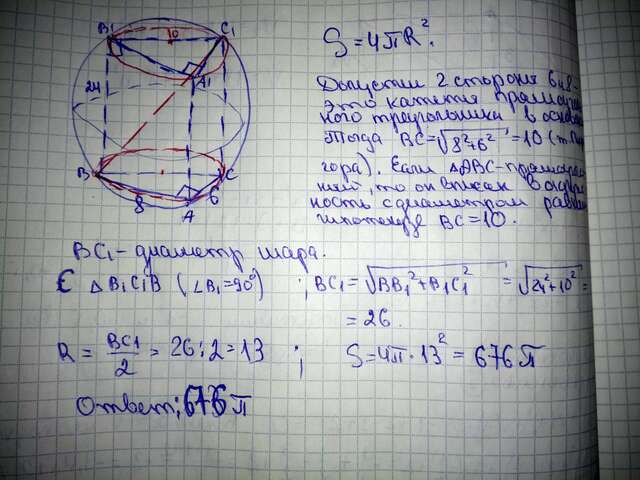 B₁
10
C₁
A₁
24
B
C
8
6
A
S=4πR².
Допустим 2 стороны 6 и 8-
это катеты прямоуголь
ного треугольника в основ
Тогда BC=√8²+6² =10 (т. Пи
гора). Если △ABC-прямоуголь
ный, то он вписан в окруж
ность с диаметром равным
гипотенузе BC=10.
BC₁-диаметр шара.
Є △B₁C₁B (∠B₁=90°) ; BC₁=√BB₁²+B₁C₁² =√24²+10² =
=26.
R = BC₁/2 = 26:2=13 ; S=4π·13² = 676π
Ответ: 676π